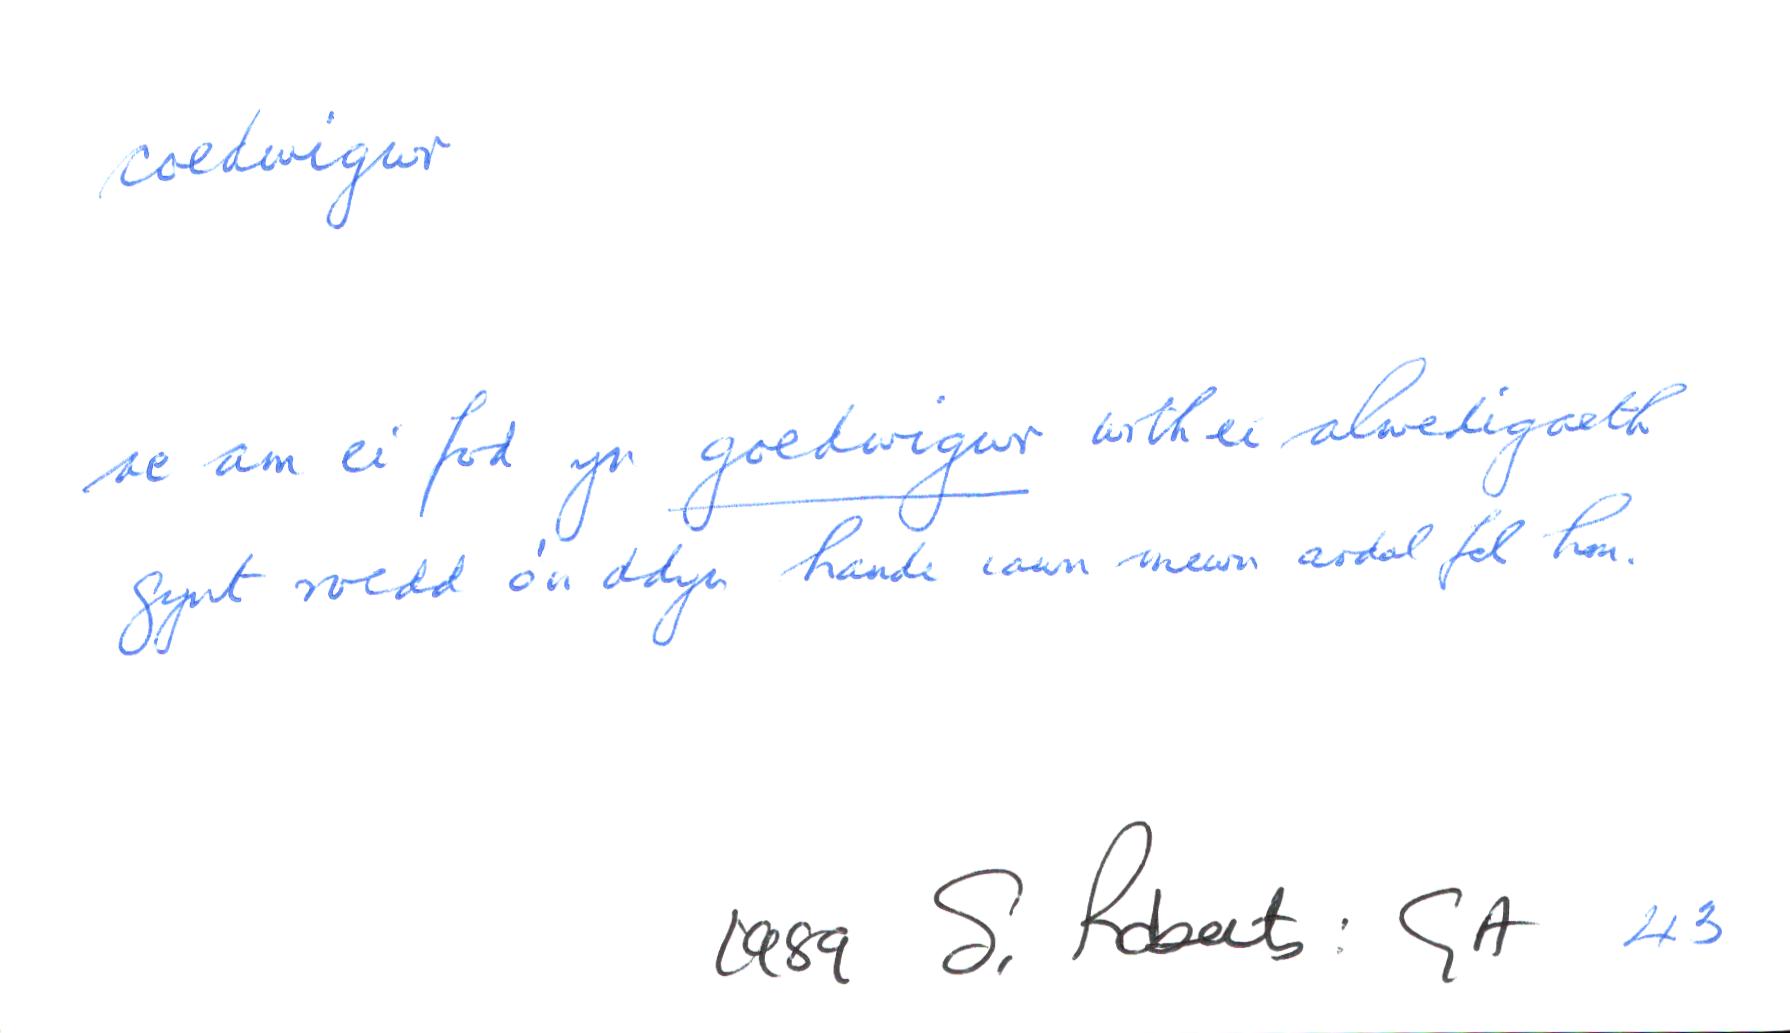 coedwigwr
ac am ei fod yn goedwigwr wrth ei alwedigaeth
gynt roedd o'n ddyn handi iawn mewn ardal fel hon.
1989 S. Roberts: GA 43